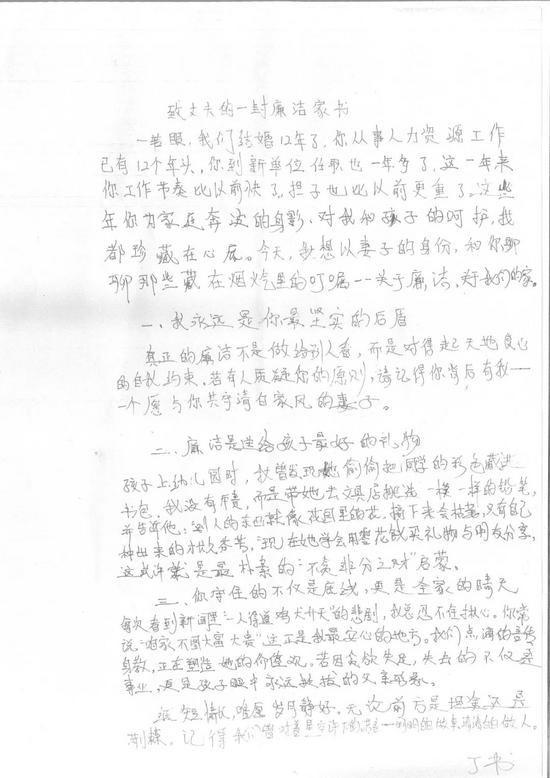 致丈夫的一封廉洁家书
一转眼，我们结婚12年了，你从事人力资源工作
已有12个年头，你到新单位任职也一年多了，这一年来
你工作节奏比以前快了，担子也比以前更重了。这些
年你为家庭奔波的身影、对我和孩子的呵护，我
都珍藏在心底。今天，我想以妻子的身份，和你聊
聊那些藏在烟火里的叮嘱——关于廉洁，对于我们的家。
一、我永远是你最坚实的后盾
真正的廉洁不是做给别人看，而是对得起天地良心
的自我约束，若有人质疑你的原则，请记得你背后有我——
一个愿与你共守清白家风的妻子。
二、廉洁是送给孩子最好的礼物
孩子上幼儿园时，我曾发现她偷偷把同学的彩色藏进
书包，我没有责，而是带她去文具店挑选一模一样的铅笔，
并告诉他：别人的东西就像花园里的花，摘下来会枯萎，只有自己
种出来的才久香。现在她学会用零花钱买礼物与朋友分享，
这或许就是最朴素的“不贪非分之财”启蒙。
三、你守住的不仅是底线，更是全家的晴天
每次看到新闻里“一人得道鸡犬升天”的悲剧，我总忍不住揪心。你常
说“咱家不图大富大贵”这正是我最安心的地方。我们点滴的言传
身教，正在塑造她的价值观。若因贪欲失足，失去的不仅是
事业，更是孩子眼中永远敬挂的父亲形象。
纸短情长，唯愿岁月静好。无论前方是坦途还是
荆棘，记得我们曾对着星空许下的诺言——明明白白做事清清白白做人。
丁书